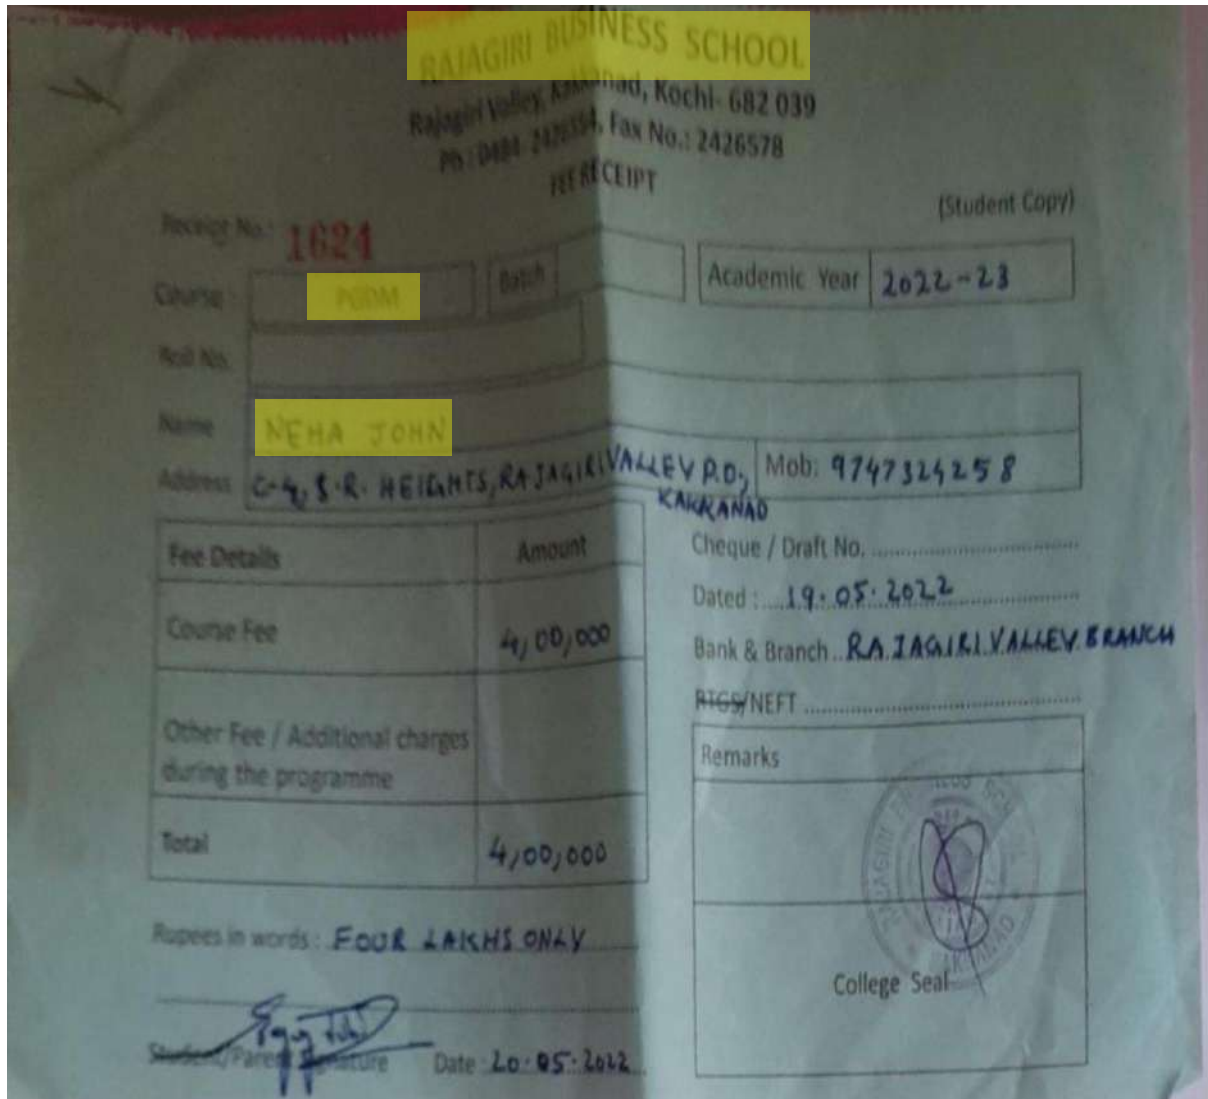 RAJAGIRI BUSINESS SCHOOL
Rajagiri Valley, Kakkanad, Kochi- 682 039
Ph : 0484- 2426554, Fax No.: 2426578
FEE RECEIPT
(Student Copy)
Receipt No.: 1624
Course : PGDM Batch Academic Year 2022-23
Roll No.
Name NEHA JOHN
Address C-4, S.R. HEIGHTS, RAJAGIRI VALLEY P.O., KAKKANAD Mob: 9747324258
Fee Details Amount
Course Fee 4,00,000
Other Fee / Additional charges
during the programme
Total 4,00,000
Cheque / Draft No.
Dated : 19.05.2022
Bank & Branch RAJAGIRI VALLEY BRANCH
RTGS/NEFT
Remarks
College Seal
Rupees in words : FOUR LAKHS ONLY
Student/Parent Signature Date 20.05.2022